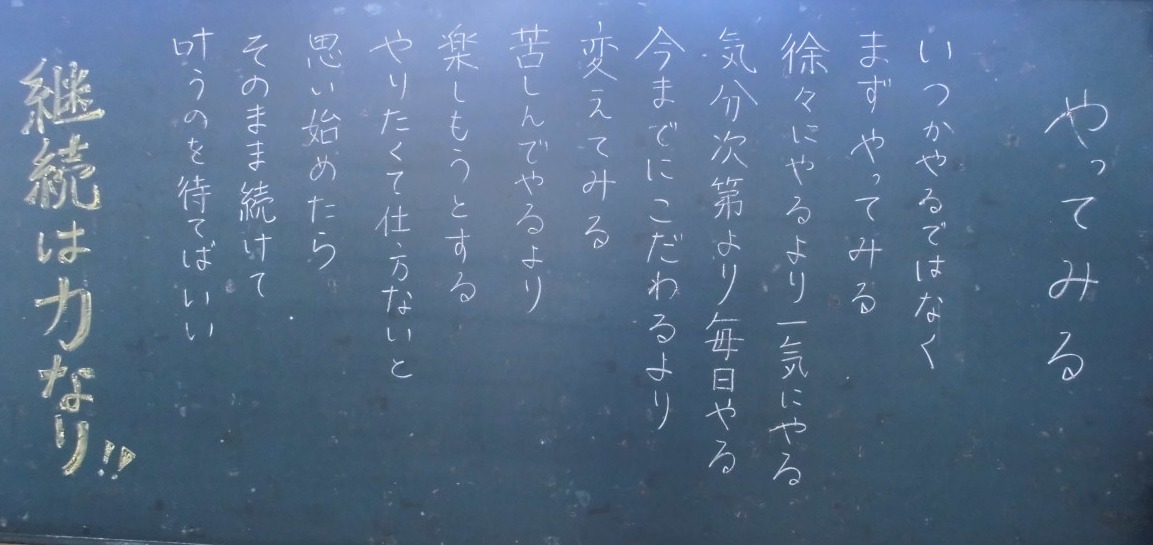 やってみる
いつかやるではなく
まずやってみる
徐々にやるより一気にやる
気分次第より毎日やる
今までにこだわるより
変えてみる
苦しんでやるより
楽しもうとする
やりたくて仕方ないと
思い始めたら
そのまま続けて
叶うのを待てばいい
継続は力なり!!